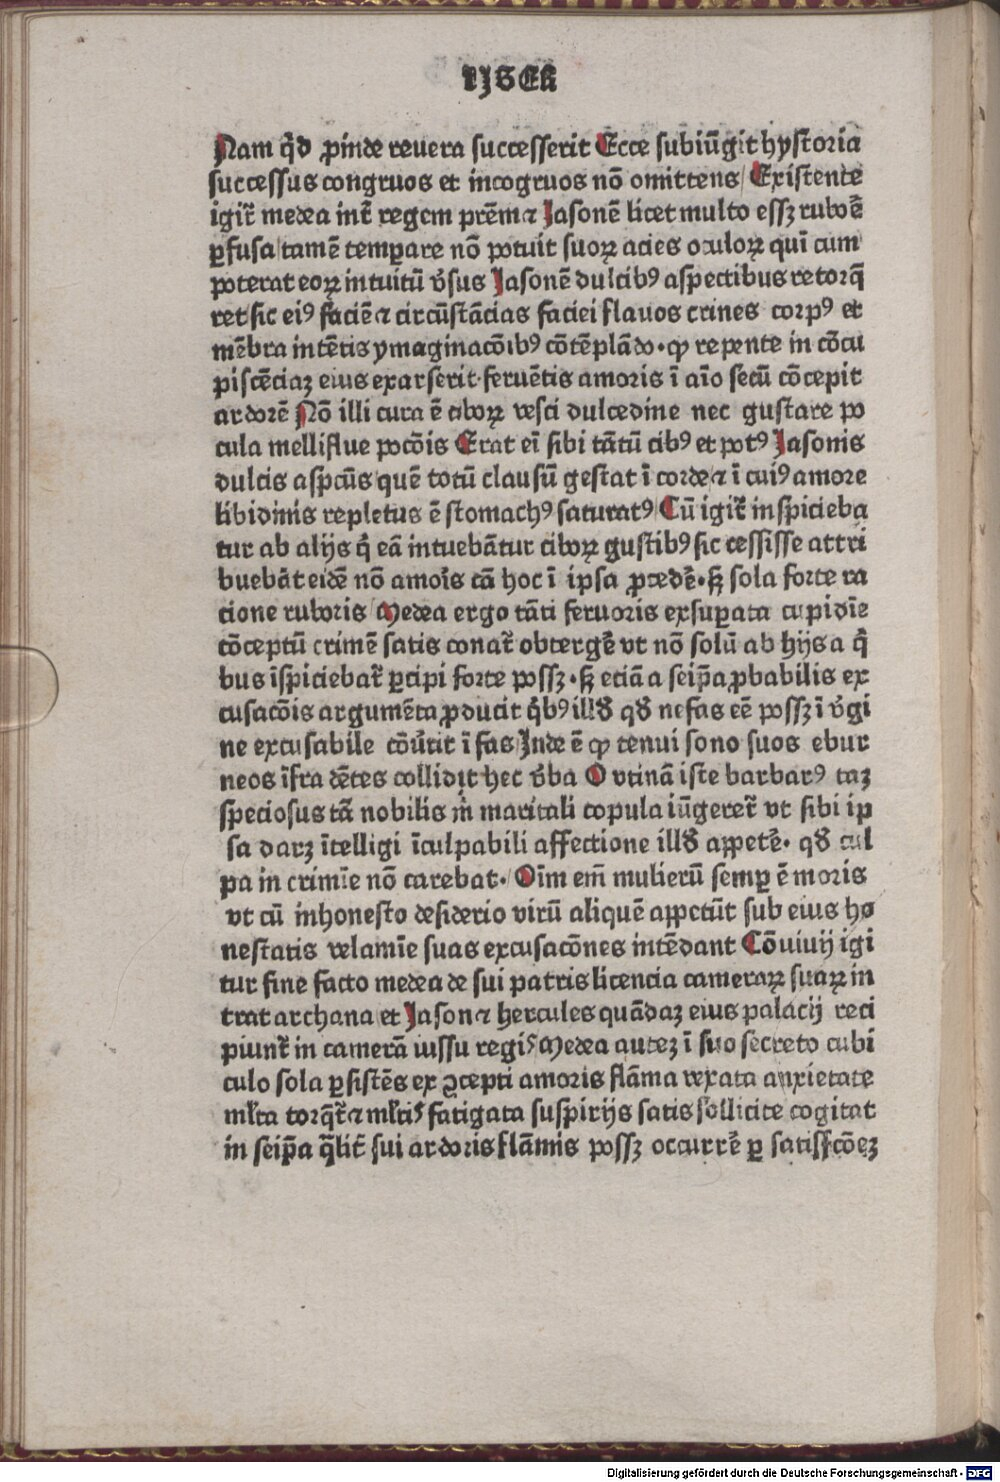 LIBER
Nam qͥd ꝓinde reuera successerit Ecce subiūgit hystoria
successus congruos et incōgruos nō omittens/ Existente
igit̃ medea int̃ regem prēm ⁊ Jasonē licet multo essꝫ rubo᷑e
ꝑfusa/tamē temꝑare nō potuit suoꝝ acies oculoꝝ quī cum
poterat eoꝝ intuitū v̓sus Jasonē dulcibꝰ aspectibus retorq̄
ret/sic eiꝰ faciē ⁊ circūstācias faciei flauos crines corpꝰ et
mēbra intētis ymaginacōibꝰ cōtēplādo· ꝙ repente in cōcu
piscēciaꝫ eius exarserit·feruētis amoris ī aīo secū cōcepit
ardorē Nō illi cura ē ciboꝝ vesci dulcedine nec gustare po
cula melliflue pocōis Erat eī sibi tātū cibꝰ et potꝰ Jasonis
dulcis aspcūs/quē totū clausū gestat ī corde/⁊ ī cuiꝰ amore
libidinis repletus ē stomachꝰ saturatꝰ/ Cū igit̃ inspicieba
tur ab alijs qͥ eā intuebātur ciboꝝ gustibꝰ sic cessisse attri
buebāt eidē nō amoĩs cā hoc ī ipsa ꝓcedẽ· sꝫ sola forte ra
cione ruboris/ Medea ergo tāti feruoris exsuꝑata cupidīe
cōceptū crimē satis conat̃ obtergẽ vt nō solū ab hijs a qͥ
bus īspiciebat̃ ꝑcipi forte possꝫ· sꝫ eciā a seip̄a ꝓbabilis ex
cusacōis argumēta ꝓducit qͥbꝰ illđ qđ nefas eē possꝫ ī v̓gi
ne excusabile cōv̓tit ī fas/ Inde ē ꝙ tenui sono suos ebur
neos īfra dētes collidit hec v̓ba O vtinā iste barbarꝰ taꝫ
speciosus tā nobilis m̓ maritali copula iūgeret̃ vt sibi ip
sa darꝫ ītelligi īculpabili affectione illđ appetẽ· qđ cul
pa in crimīe nō carebat· Oīm em̄ mulierū semꝑ ē moris
vt cū inhonesto desiderio virū aliquē appetūt sub eius ho
nestatis velamīe suas excusacōnes intēdant Cōuiuij igi
tur fine facto medea de sui patris licencia cameraꝝ suaꝝ in
trat archana et Jason ⁊ hercules quādaꝫ eius palacij reci
piunt̃ in camerā iussu regiꝰ Medea auteꝫ ī suo secreto cubi
culo sola ꝑsistēs ex ꝯcepti amoris flāma vexata anxietate
ml̃ta torq̄t̃ ⁊ ml̃tiꝰ fatigata suspirijs satis sollicite cogitat
in seip̄a qͣlit̃ sui ardoris flāmis possꝫ occurrẽ ꝑ satisf̄cōeꝫ
Digitalisierung gefördert durch die Deutsche Forschungsgemeinschaft - DFG